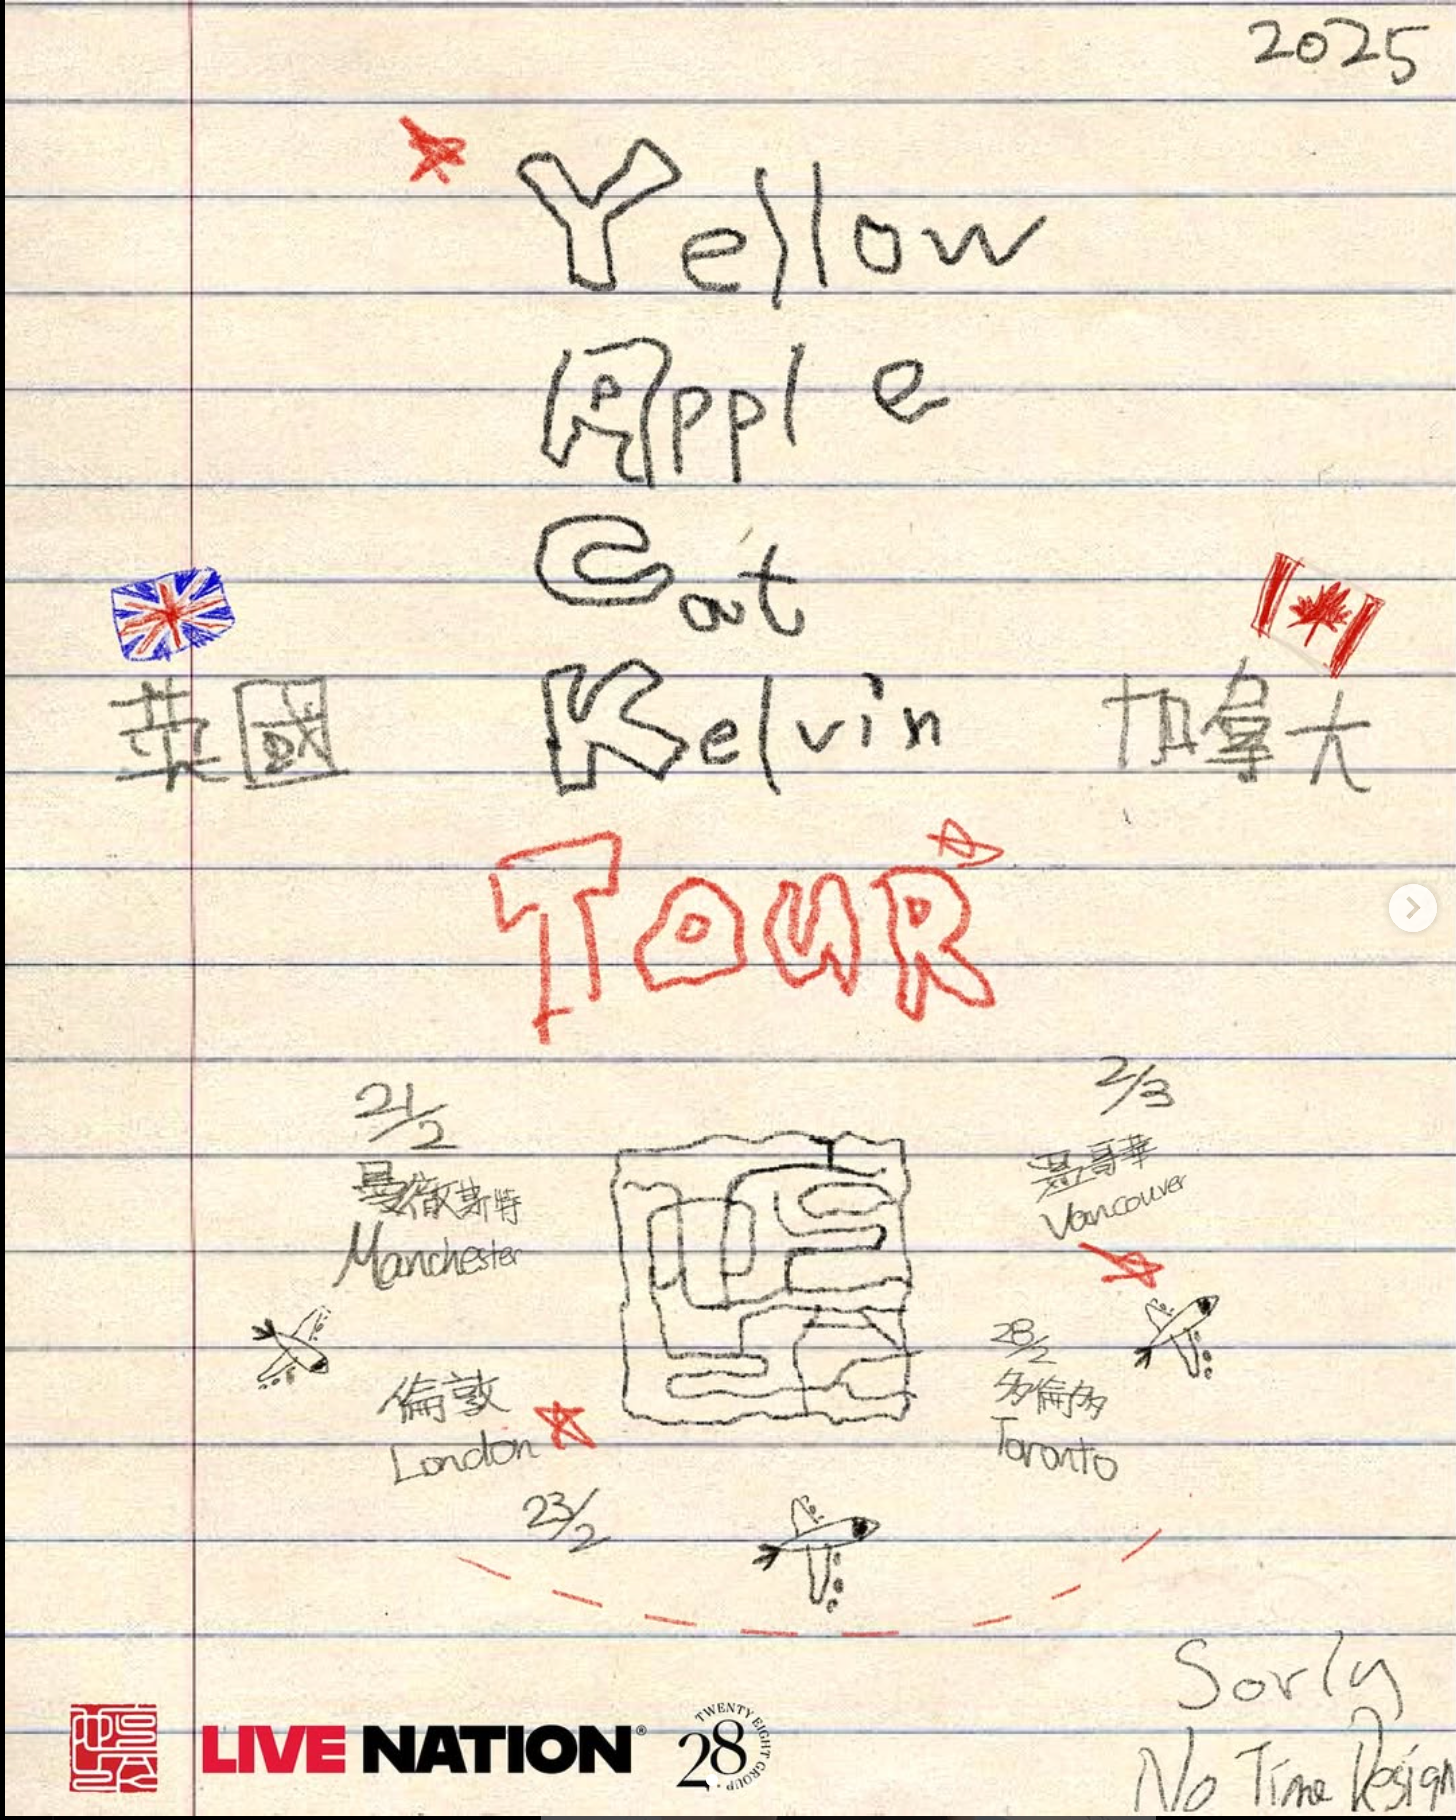 2025
Yellow
Apple
Cat
Kelvin
英國
加拿大
TOUR
21/2
曼徹斯特
Manchester
2/3
溫哥華
Vancouver
倫敦
London
23/2
28/2
多倫多
Toronto
Sorly
No Time Design
LIVE NATION®
28
TWENTY EIGHT GROUP